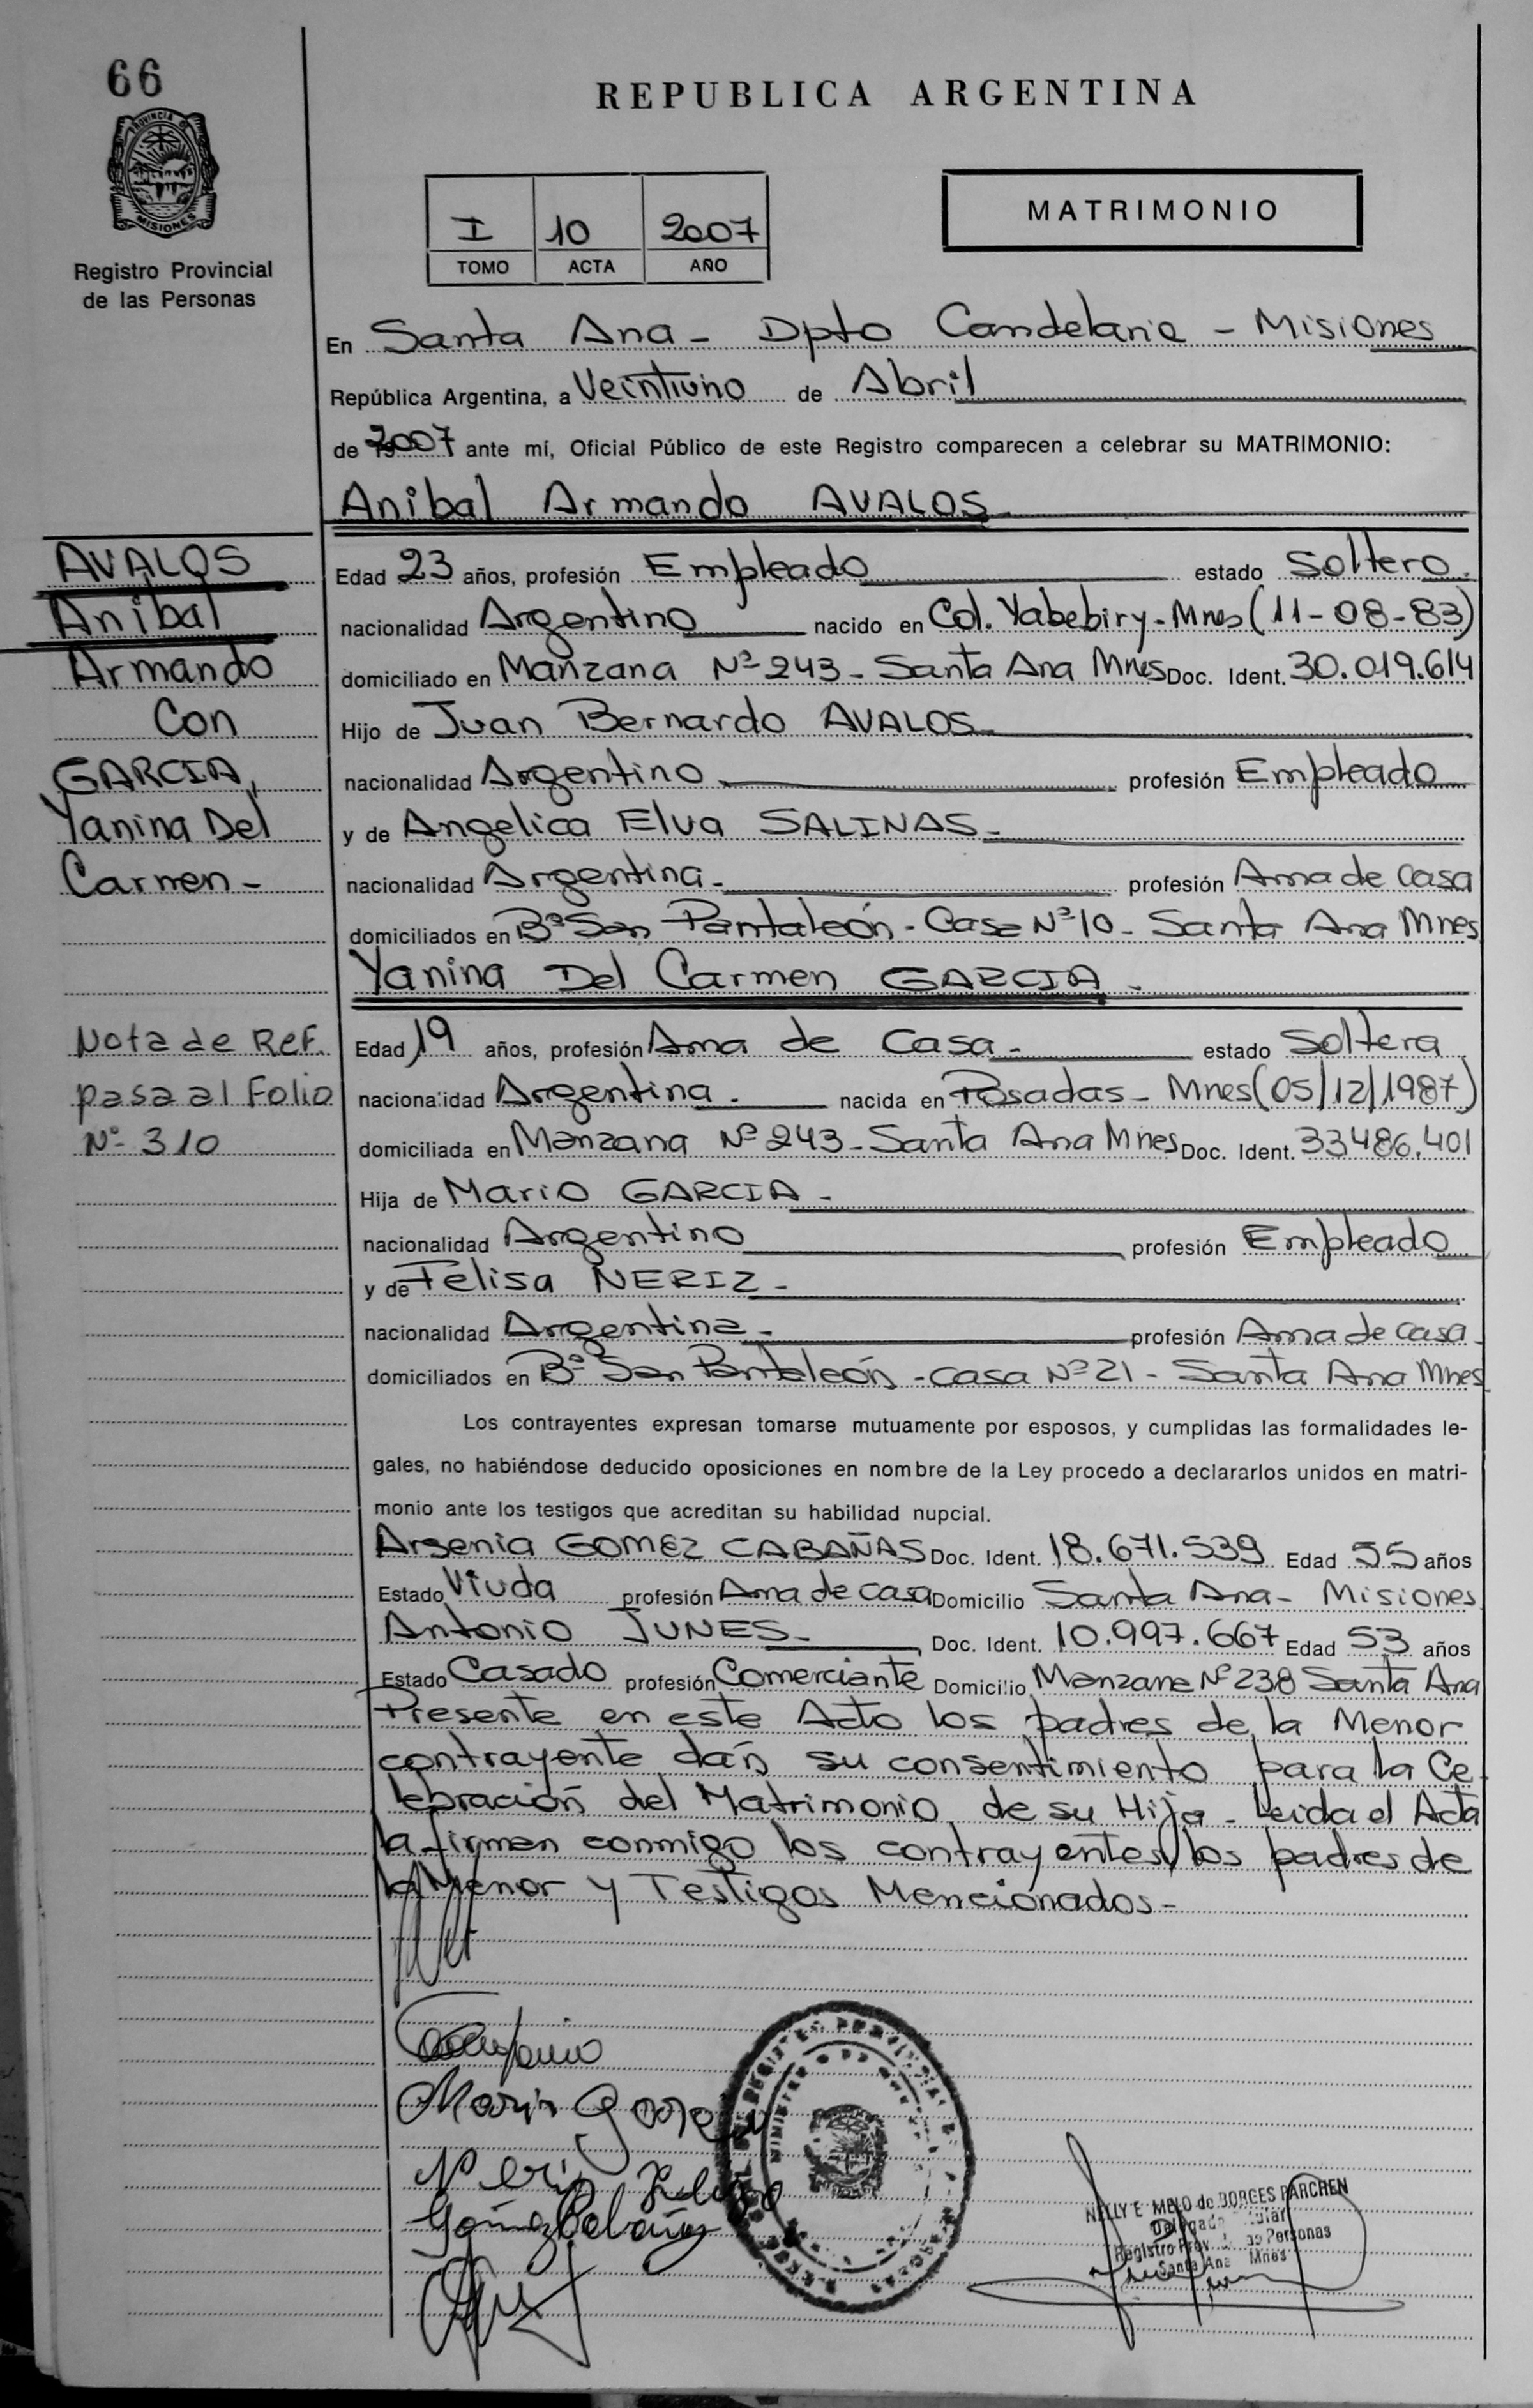 66
REPUBLICA ARGENTINA
PROVINCIA DE
MISIONES
Registro Provincial
de las Personas
I 10 2007
TOMO ACTA AÑO
MATRIMONIO
En Santa Ana - Dpto Candelaria - Misiones
República Argentina, a Veintiuno de Abril
de 2007 ante mí, Oficial Público de este Registro comparecen a celebrar su MATRIMONIO:
Anibal Armando AVALOS
Edad 23 años, profesión Empleado estado Soltero
nacionalidad Argentino nacido en Col. Yabebiry - Mnes (11-08-83)
domiciliado en Manzana Nº 243 - Santa Ana Mnes Doc. Ident. 30.019.614
Hijo de Juan Bernardo AVALOS
nacionalidad Argentino profesión Empleado
y de Angelica Elva SALINAS -
nacionalidad Argentina - profesión Ama de casa
domiciliados en Bº San Pantaleón - Casa Nº 10 - Santa Ana Mnes
Yanina Del Carmen GARCIA -
Edad 19 años, profesión Ama de Casa - estado Soltera
nacionalidad Argentina - nacida en Posadas - Mnes (05/12/1987)
domiciliada en Manzana Nº 243 - Santa Ana Mnes Doc. Ident. 33486.401
Hija de Mario GARCIA -
nacionalidad Argentino profesión Empleado
y de Felisa NERIZ -
nacionalidad Argentina - profesión Ama de casa -
domiciliados en Bº San Pantaleón - casa Nº 21 - Santa Ana Mnes
Los contrayentes expresan tomarse mutuamente por esposos, y cumplidas las formalidades le-
gales, no habiéndose deducido oposiciones en nombre de la Ley procedo a declararlos unidos en matri-
monio ante los testigos que acreditan su habilidad nupcial.
Arsenia GOMEZ CABAÑAS Doc. Ident. 18.671.539 Edad 55 años
Estado Viuda profesión Ama de casa Domicilio Santa Ana - Misiones
Antonio JUNES - Doc. Ident. 10.997.667 Edad 53 años
Estado Casado profesión Comerciante Domicilio Manzana Nº 238 Santa Ana
Presente en este Acto los padres de la Menor
contrayente dán su consentimiento para la Ce
lebración del Matrimonio de su Hija - Leida el Acta
la firman conmigo los contrayentes, los padres de
la Menor y Testigos Mencionados -
AVALOS
Anibal
Armando
Con
GARCIA,
Yanina Del
Carmen -
Nota de Ref.
pasa al Folio
Nº 310
Gomez Cabañas
NELLY E. MELO de BORGES PARCHEN
Registro Prov. Personas
Santa Ana Mnes